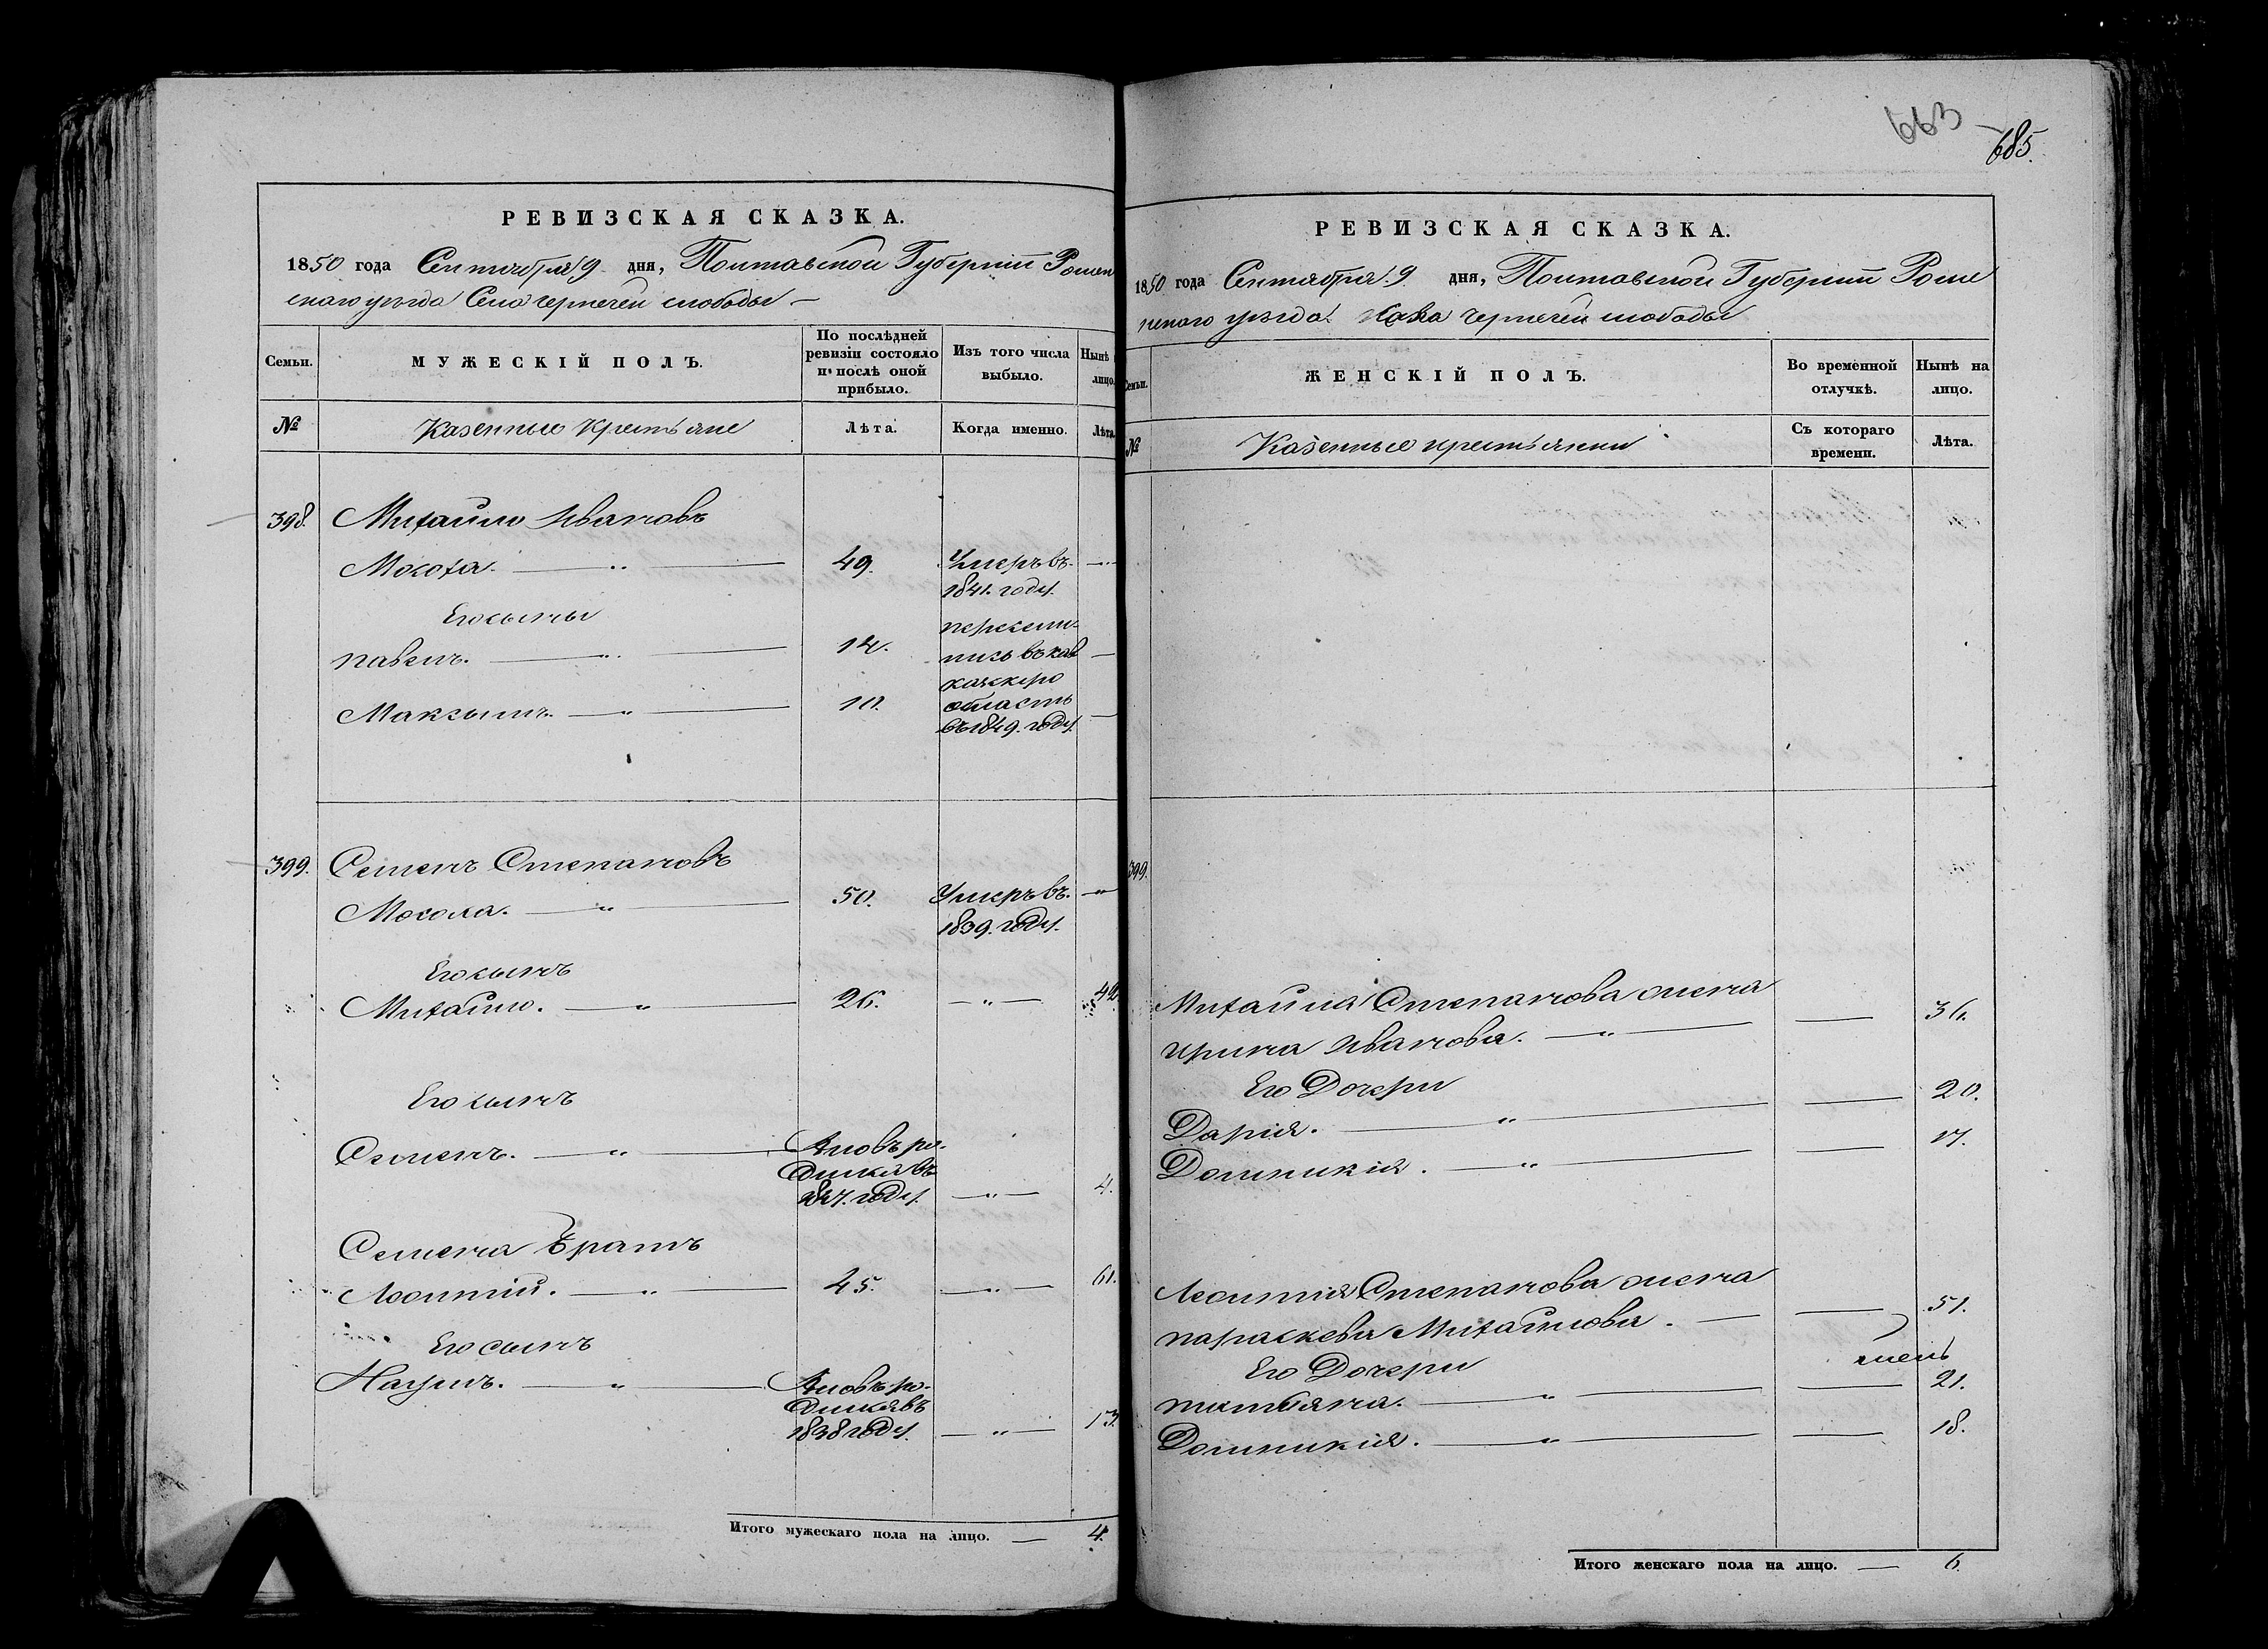 РЕВИЗСКАЯ СКАЗКА.
1850 года Сентября 9 дня, Полтавской Губерніи Ромен
скаго уезда Села чернечей слободы
Семьи.
МУЖЕСКІЙ ПОЛЪ.
По послѣдней ревизіи состояло и послѣ оной прибыло.
Изъ того числа выбыло.
Нынѣ
лицо.
№
Казенные Крестьяне
Лѣта.
Когда именно.
Лѣта.
398. Михайло Ивановъ
Мокоха. 49. Умеръ въ
1841. году.
Его сыны
павелъ. 14. пересели-
лись въ кав
Максымъ. 10. казскую
область
въ 1849. году.
399. Семенъ Степановъ
50. Умеръ въ
1839. году.
Его сынъ
Михайло. 26. 42
Его сынъ
Семенъ. Вновь ро-
дился въ
1847. году. 4.
Семена братъ
Леонтій. 45. 61.
Его сынъ
Наумъ. Вновь ро-
дился въ
1838 году. 13
Итого мужескаго пола на лицо. 4.
663
685.
РЕВИЗСКАЯ СКАЗКА.
1850 года Сентября 9 дня, Полтавской Губерніи Роме
нскаго уезда чернечей слободы
Семьи.
ЖЕНСКІЙ ПОЛЪ.
Во временной отлучкѣ.
Нынѣ на лицо.
№
Казенные крестьянки
Съ котораго времени.
Лѣта.
399.
Михайла Степанова жена
ирина иванова. 36.
Его Дочери
Дарія. 20.
Домникія. 17.
Леонтия Степанова жена
параскева Михайлова. 51.
Его Дочери
татіяна. 21.
Домникія. 18.
Итого женскаго пола на лицо. 6.